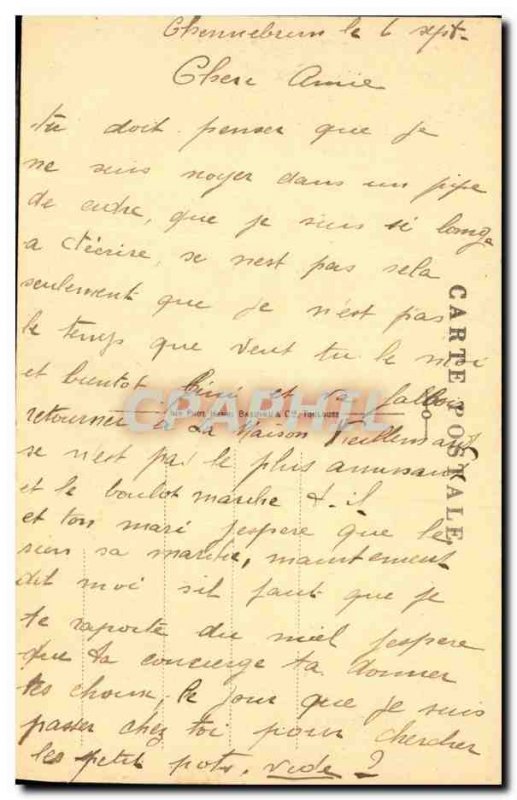 Chennebrun le 6 sept.
Chere Amie
tu doit penser que je
ne suis noyer dans un pipe
de cidre, que je suis si longe
a t'écrire, se nest pas sela
seulement que je n'est pas
le temps que veut tu le moi
et bientot fini et sa falloir
retourner à La Maison Vieillemard
se n'est pas le plus amusant
et le boulot marche t-il
et ton mari jespere que le
sien sa marche, maintement
dit moi sil faut que je
te raporte du miel jespere
que ta concierge ta donner
tes choux, le jour que je suis
passer chez toi pour chercher
les petit pots, vide ?
CARTE POSTALE
CPAPHIL